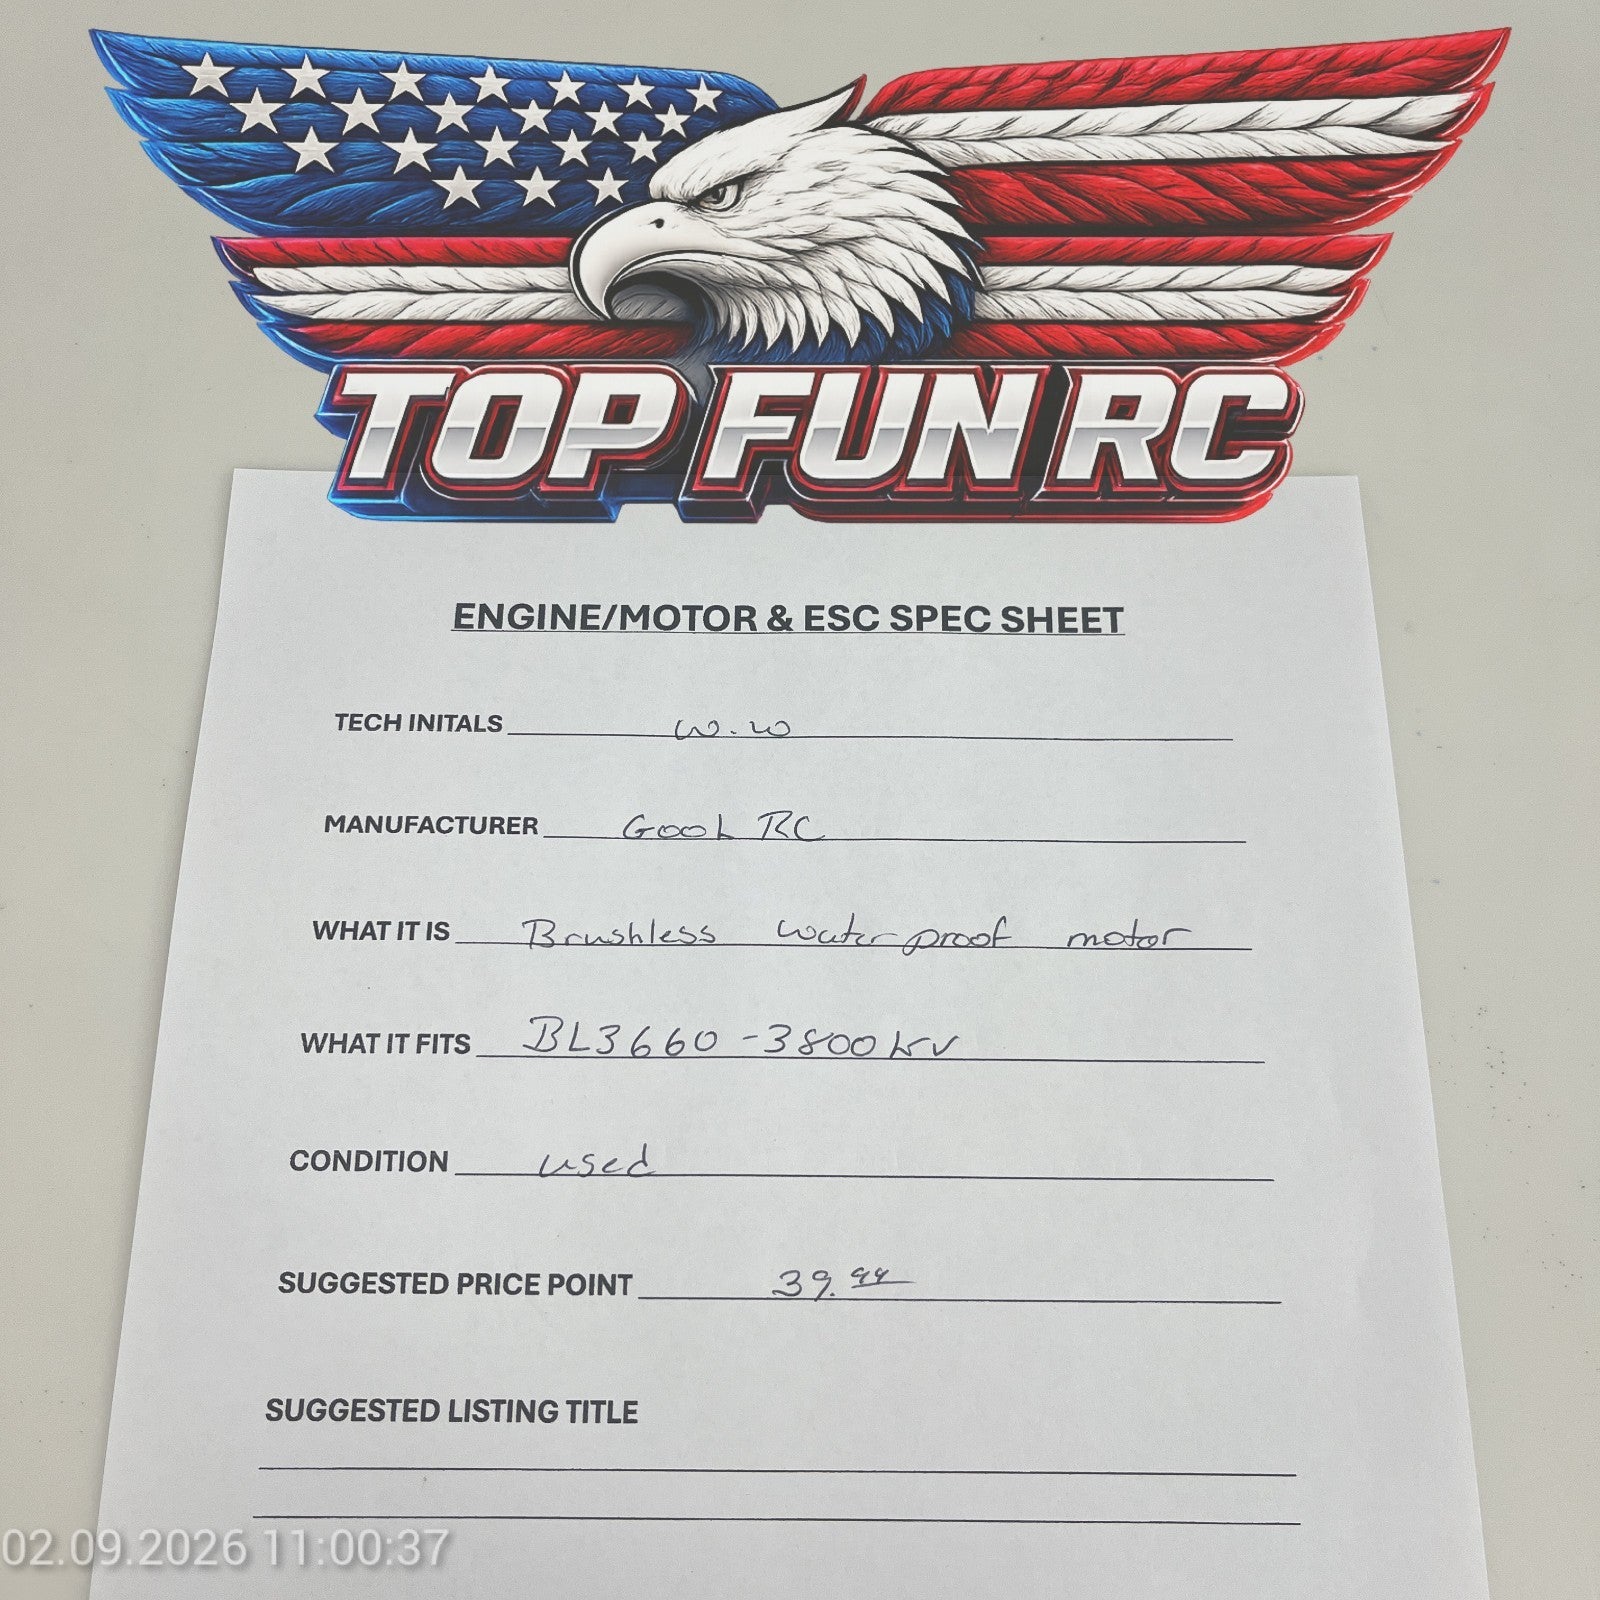 TOP FUN RC
ENGINE/MOTOR & ESC SPEC SHEET
TECH INITALS W.W
MANUFACTURER Gool RC
WHAT IT IS Brushless waterproof motor
WHAT IT FITS BL3660-3800kv
CONDITION used
SUGGESTED PRICE POINT 39.99
SUGGESTED LISTING TITLE
02.09.2026 11:00:37